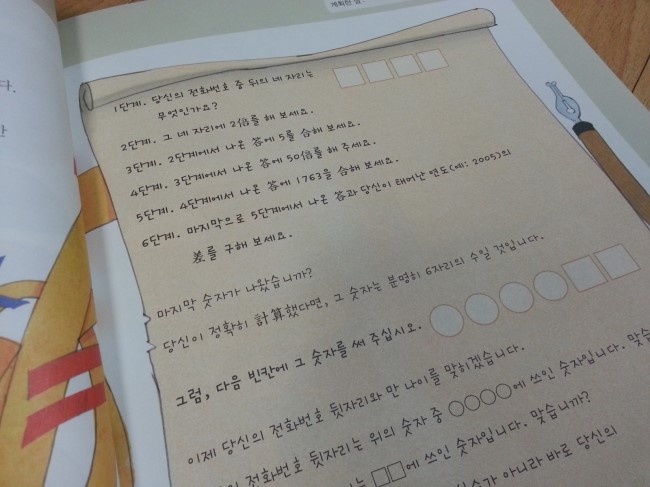 계획한 일
다.
1단계. 당신의 전화번호 중 뒤의 네 자리는
무엇인가요?
2단계. 그 네 자리에 2倍를 해 보세요.
3단계. 2단계에서 나온 答에 5를 合해 보세요.
4단계. 3단계에서 나온 答에 50倍를 해 주세요.
5단계. 4단계에서 나온 答에 1763을 合해 보세요.
6단계. 마지막으로 5단계에서 나온 答과 당신이 태어난 연도(예: 2005)의
差를 구해 보세요.
마지막 숫자가 나왔습니까?
당신이 정확히 計算했다면, 그 숫자는 분명히 6자리의 수일 것입니다.
그럼, 다음 빈칸에 그 숫자를 써 주십시오.
이제 당신의 전화번호 뒷자리와 만 나이를 맞히겠습니다.
전화번호 뒷자리는 위의 숫자 중 ○○○○에 쓰인 숫자입니다. 맞습
는 □□에 쓰인 숫자입니다. 맞습니까?
가 아니라 바로 당신의